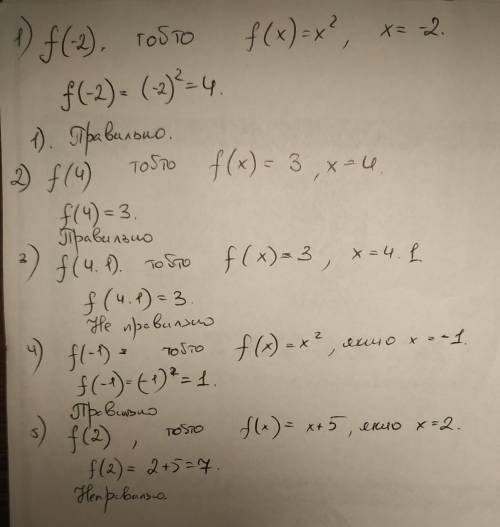 1) f(-2), тобто f(x)=x², x= -2.
f(-2)= (-2)²=4.
1). Правильно.
2) f(4) тобто f(x)= 3, x=4.
f(4)=3.
Правильно
3) f(4.1). тобто f(x)=3, x=4.1
f(4.1)=3.
Не правильно
4) f(-1)= тобто f(x)=x², якщо x=-1.
f(-1)=(-1)²=1.
Правильно
5) f(2), тобто f(x)= x+5, якщо x=2.
f(2)= 2+5=7.
Неправильно